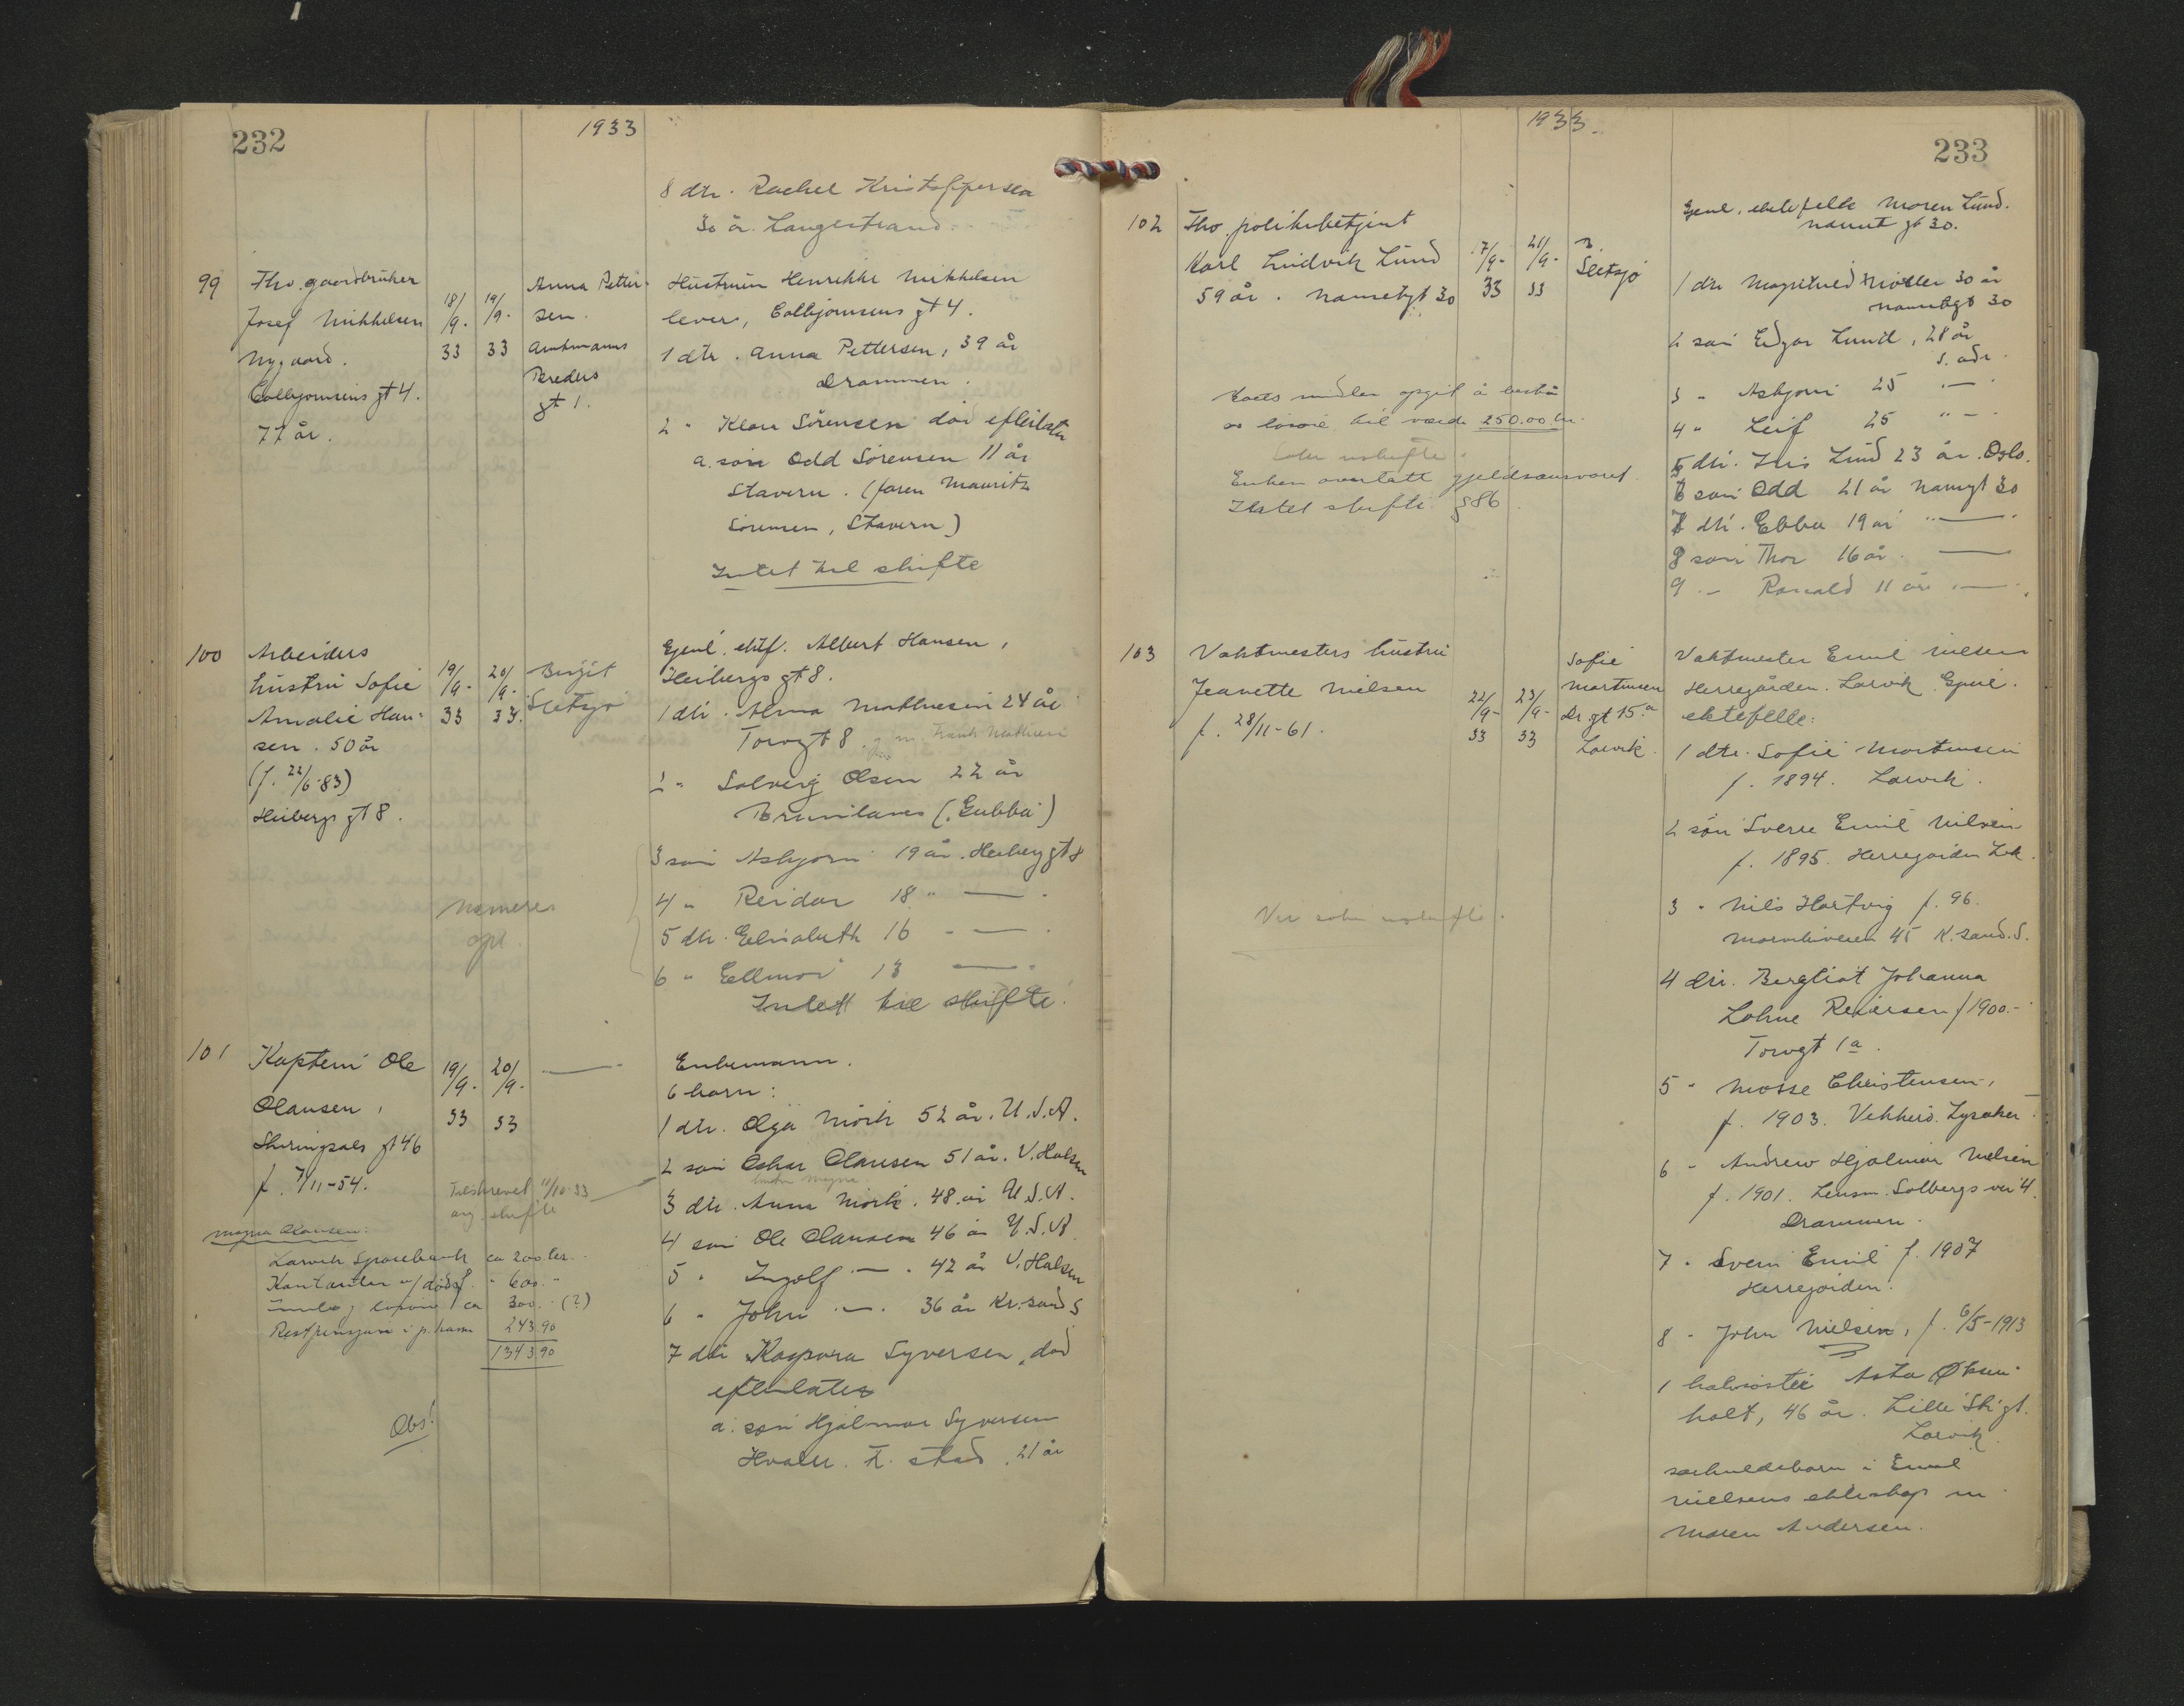 232
1933
8 dtr. Rachel Kristoffersen
30 år. Langestrand.
99
Fhv. gaardbruker
Josef Mikkelsen
Nygaard.
Colbjørnsens gt 4.
77 år.
18/9-33
19/9-33
Anna Petter-
sen.
Amtmanns
Breders
gt 1.
Hustruen Henrikke Mikkelsen
lever, Colbjørnsens gt 4.
1 dtr. Anna Pettersen, 39 år
Drammen.
2 " Klara Sörensen död efterlater
a. sön Odd Sörensen 11 år
Stavern. (faren Mauritz
Sörensen, Stavern)
Intet til skifte
100
Arbeiders
hustru Sofie
Amalie Han-
sen. 50 år
(f. 22/6-83)
Heibergs gt 8.
19/9-33
20/9-33.
Birgit
Sletsjö
Gjenl. ektf. Albert Hansen,
Heibergs gt 8.
1 dtr. Alma Mathiesen 24 år
Torvgt 8. g. m. Frank Mathiesen
2 " Solveig Olsen 22 år
Brunlanes (Gubba)
3 sön Asbjörn 19 år. Heiberg gt 8
4 " Reidar 18 " —
5 dtr. Elisabeth 16 - —
6 " Ellinor 13 —
Intet til skifte.
101
Kaptein Ole
Olausen,
Skiringsals gt 46
f. 7/11-54.
19/9-33
20/9-33
—
Tilskrevet 11/10-33
ang. skifte
Magna Olausen:
Larvik Sparebank ca 200 kr.
Kontanter v/ dødsf. " 600. "
innbo, løsøre ca 300. - (?)
Restpensjon i p.kasse 243 90
1343 90
Obs!
Enkemann.
6 barn:
1 dtr. Olga Mörk 52 år. U.S.A.
2 sön Oskar Olausen 51 år. V. Halsen
3 dtr. Anna Mörk. 48 år U.S.A.
4 sön Ole Olausen 46 år U.S.A.
5 " Ingolf —. 42 år V. Halsen
6 " John —. 36 år Kr.sand S
7 dtr Kaspara Syversen, död
efterlater
a. sön Hjalmar Syversen
Hvaler. F. stad. 21 år
1933.
233
102
Fhv. politibetjent
Karl Ludvik Lund
59 år. Nansetgt 30
17/9-33
21/9-33
B.
Sletsjö
Gjenl. ektefelle Maren Lund.
Nanset gt 30.
1 dtr Magnhild Möller 30 år
Nansetgt 30
2 sön Edgar Lund, 28 år
s. adr.
3 " Asbjörn 25 " —
4 " Leif 25 " —
5 dtr. Iris Lund 23 år. Oslo.
6 sön Odd 21 år Nansgt 30
7 dtr. Ebba 19 år " —
8 sön Thor 16 år. —
9 - Ronald 11 år. —
Boets midler opgit å bestå
av lösöre til verdi 250.00 kr.
Enken overtatt gjeldsansvaret.
Intet skifte § 86.
103
Vaktmesters hustru
Jeanette Nielsen
f. 28/11-61.
22/9-33
23/9-33
Sofie
Martinsen
Dr. gt 15a
Larvik.
Vaktmester Emil Nielsen
Herregården. Larvik. Gjenl.
ektefelle:
1 dtr. Sofie Martinsen
f. 1894. Larvik.
2 sön Sverre Emil Nilsen
f. 1895. Herregården Lvk.
3 " Nils Hartvig f. 96.
45 K.sand. S.
4 dtr. Bergliot Johanna
Lohne Reiersen f 1900.-
Torvgt 1a.
5 " Mosse Christensen,
f. 1903. Vekkerö. Lysaker.
6 - Andrew Hjalmar Nielsen
f. 1901. Lensm. Solbergs vei 4.
Drammen.
7 " Svein Emil f. 1907
Herregården.
8 - John Nielsen, f. 6/5-1913
1 halvsöster Asta Øksen-
holt, 46 år. Lille Sk.gt.
Larvik.
særkuldsbarn i Emil
Nielsens ekteskap m
Maren Andersen.